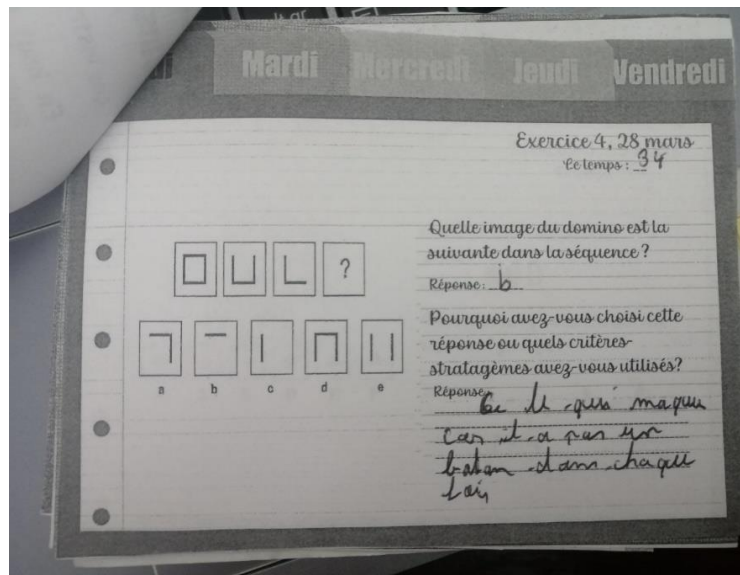 Mardi Mercredi Jeudi Vendredi
Exercice 4, 28 mars
Le temps : 34
Quelle image du domino est la
suivante dans la séquence ?
Réponse : b
?
a b c d e
Pourquoi avez-vous choisi cette
réponse ou quels critères-
stratagèmes avez-vous utilisés?
Réponse
qui maque
car it a pas un
batan dam chaque